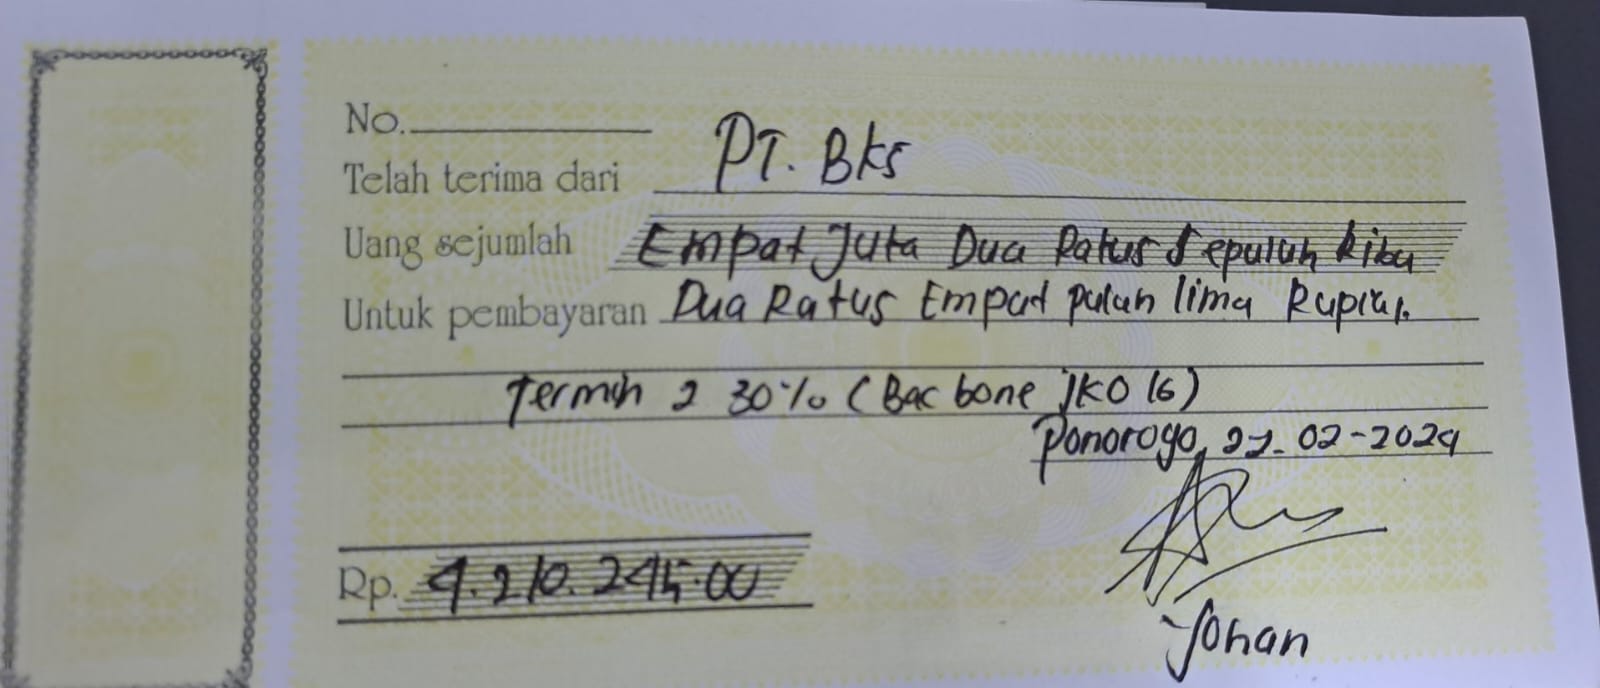 No.
Telah terima dari PT. Bks
Uang sejumlah Empat Juta Dua Ratus Sepuluh Ribu
Untuk pembayaran Dua Ratus Empat puluh lima Rupiah.
Termin 2 30% (Bac bone JKO 16)
Ponorogo, 27-02-2024
Rp. 4.210.245.00
Johan